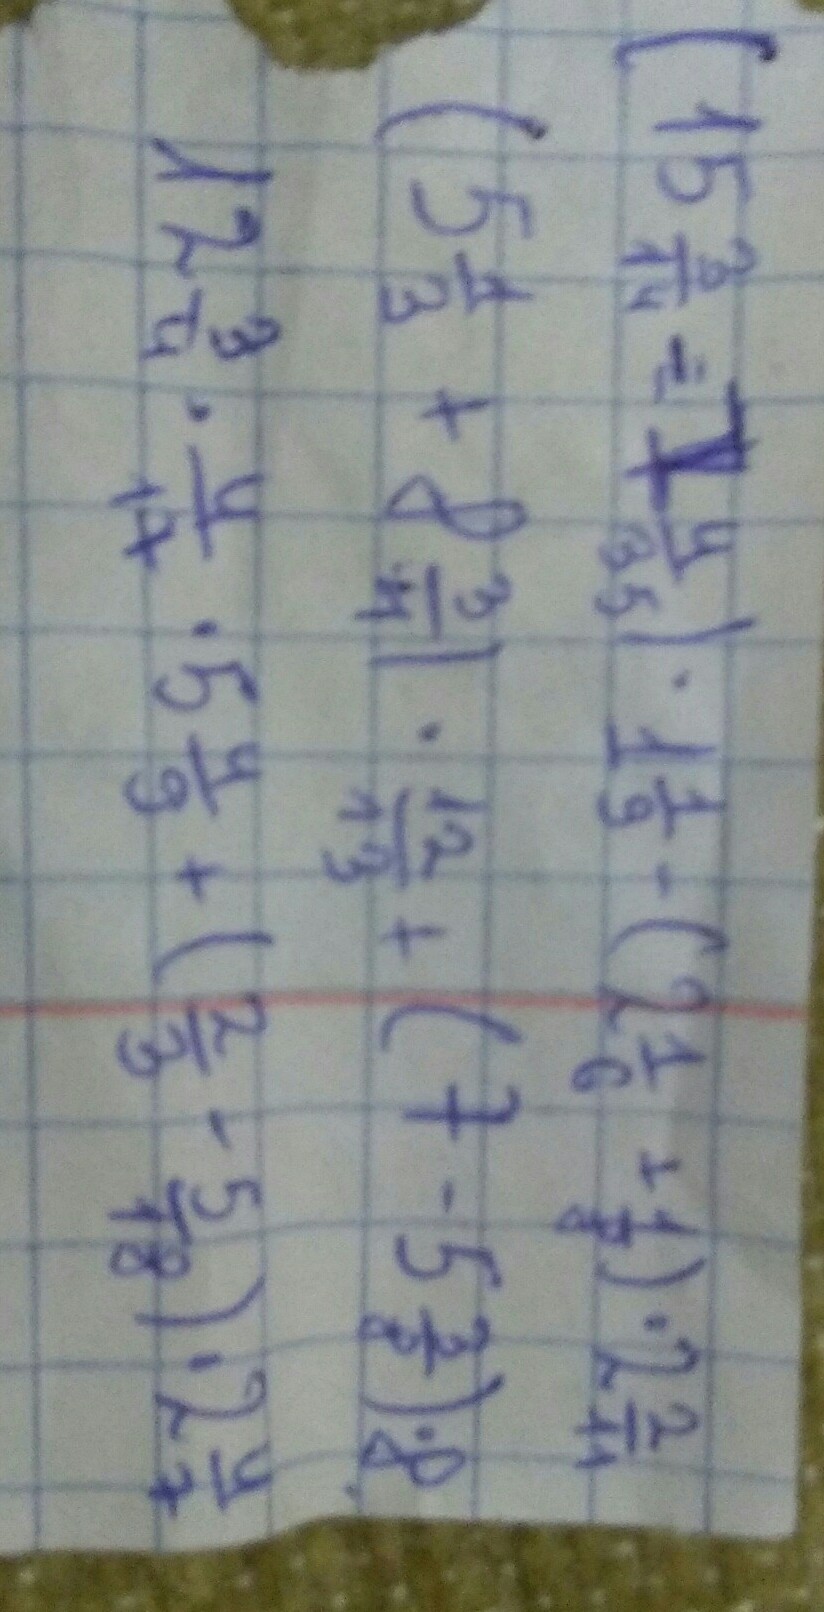 (15 3/14 - 4/35) · 1 1/9 - (2 1/6 + 1/8) · 2 2/11
(5 1/3 + 8 3/4) · 12/13 + (7 - 5 3/8) · 8
12 3/4 · 4/17 · 5 4/9 + (2/3 - 5/18) · 2 4/7